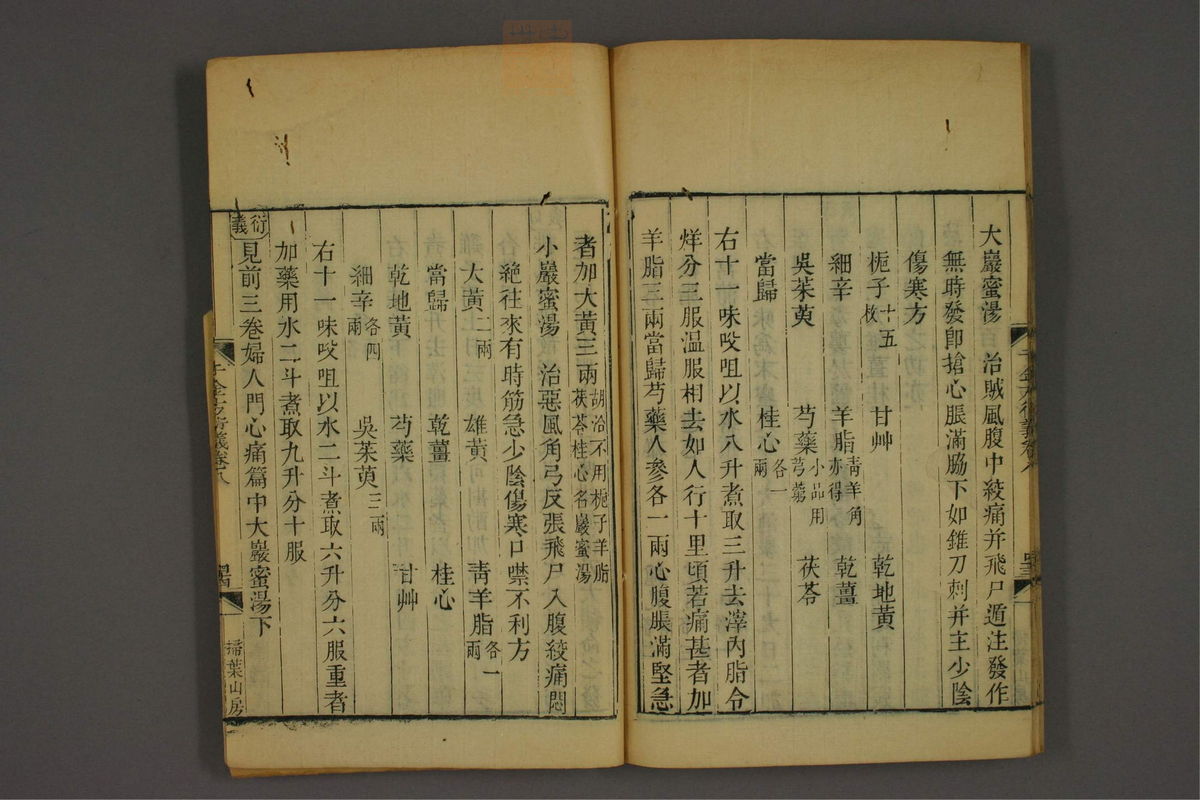 大巖蜜湯 治賊風腹中絞痛并飛尸遁注發作
無時發卽搶心脹滿脇下如錐刀刺并主少陰
傷寒方
梔子十五枚 甘艸 乾地黄
細辛 羊脂青羊角亦得 乾薑
吳茱萸 芍藥小品用芎藭 茯苓
當歸 桂心各一兩
右十一味㕮咀以水八升煮取三升去滓內脂令
烊分三服温服相去如人行十里頃若痛甚者加
羊脂三兩當歸芍藥人參各一兩心腹脹滿堅急
者加大黄三兩胡洽不用梔子羊脂茯苓桂心名巖蜜湯
小巖蜜湯 治惡風角弓反張飛尸入腹絞痛悶
絶往來有時筋急少陰傷寒口噤不利方
大黄二兩 雄黄 青羊脂各一兩
當歸 乾薑 桂心
乾地黄 芍藥 甘艸
細辛各四兩 吳茱萸三兩
右十一味㕮咀以水二斗煮取六升分六服重者
加藥用水二斗煮取九升分十服
衍義 見前三卷婦人門心痛篇中大巖蜜湯下
千金方衍義卷八
掃葉山房